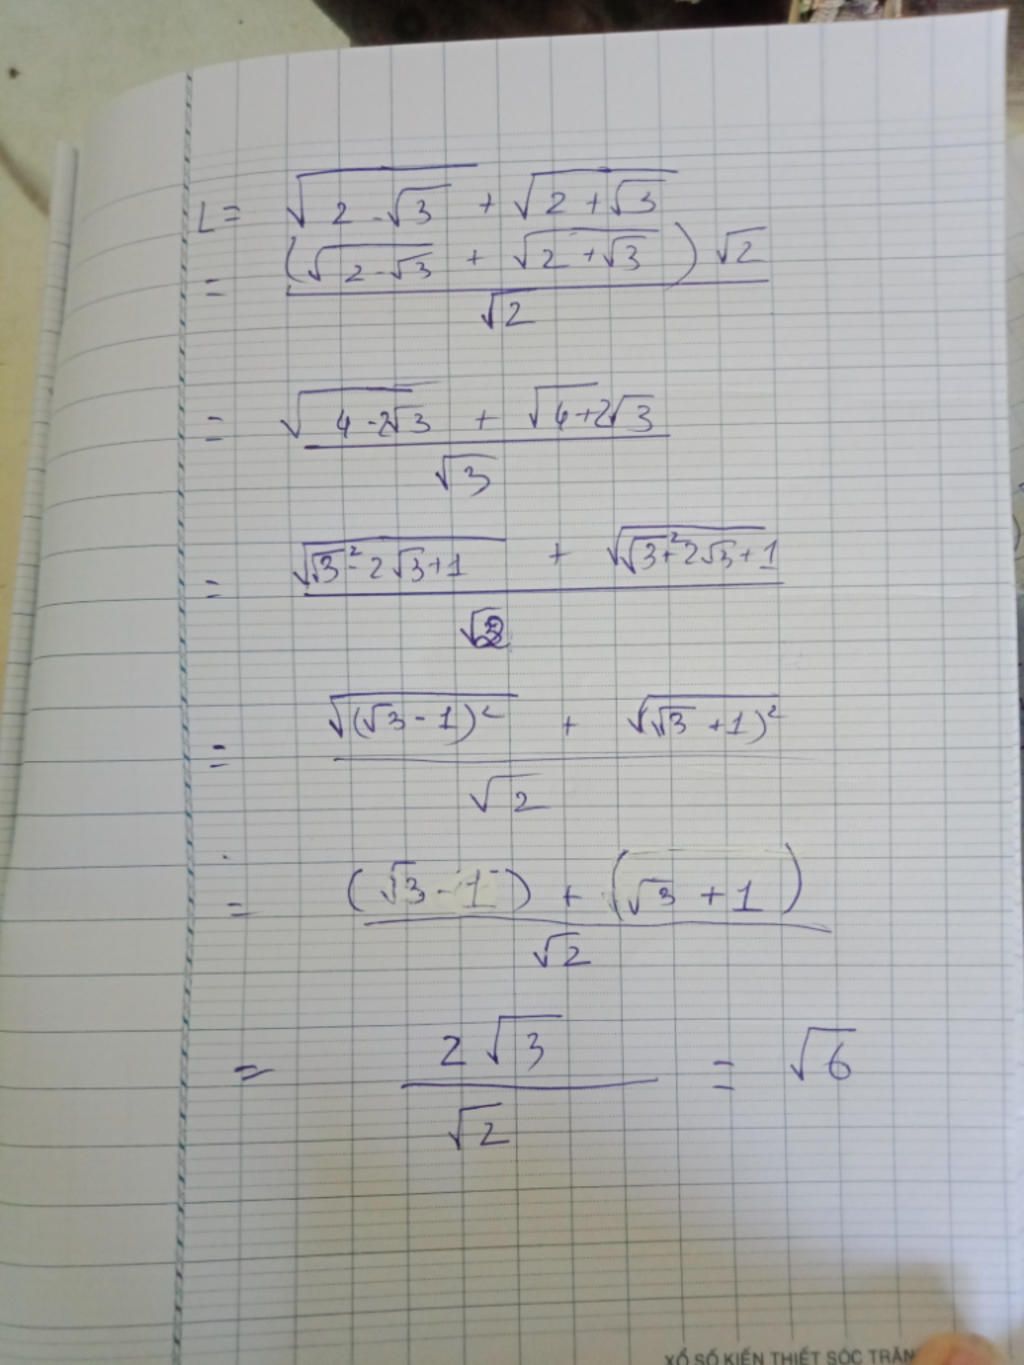 L = √(2 - √3) + √(2 + √3)
= (√(2 - √3) + √(2 + √3)) √2 / √2
= (√(4 - 2√3) + √(4 + 2√3)) / √3
= (√(√3² - 2√3 + 1) + √(√3² + 2√3 + 1)) / √2
= (√((√3 - 1)²) + √((√3 + 1)²)) / √2
= ((√3 - 1) + (√3 + 1)) / √2
= 2√3 / √2 = √6
XỔ SỐ KIẾN THIẾT SÓC TRĂN